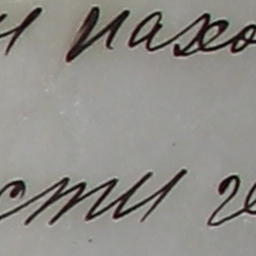 и нахо
сти че